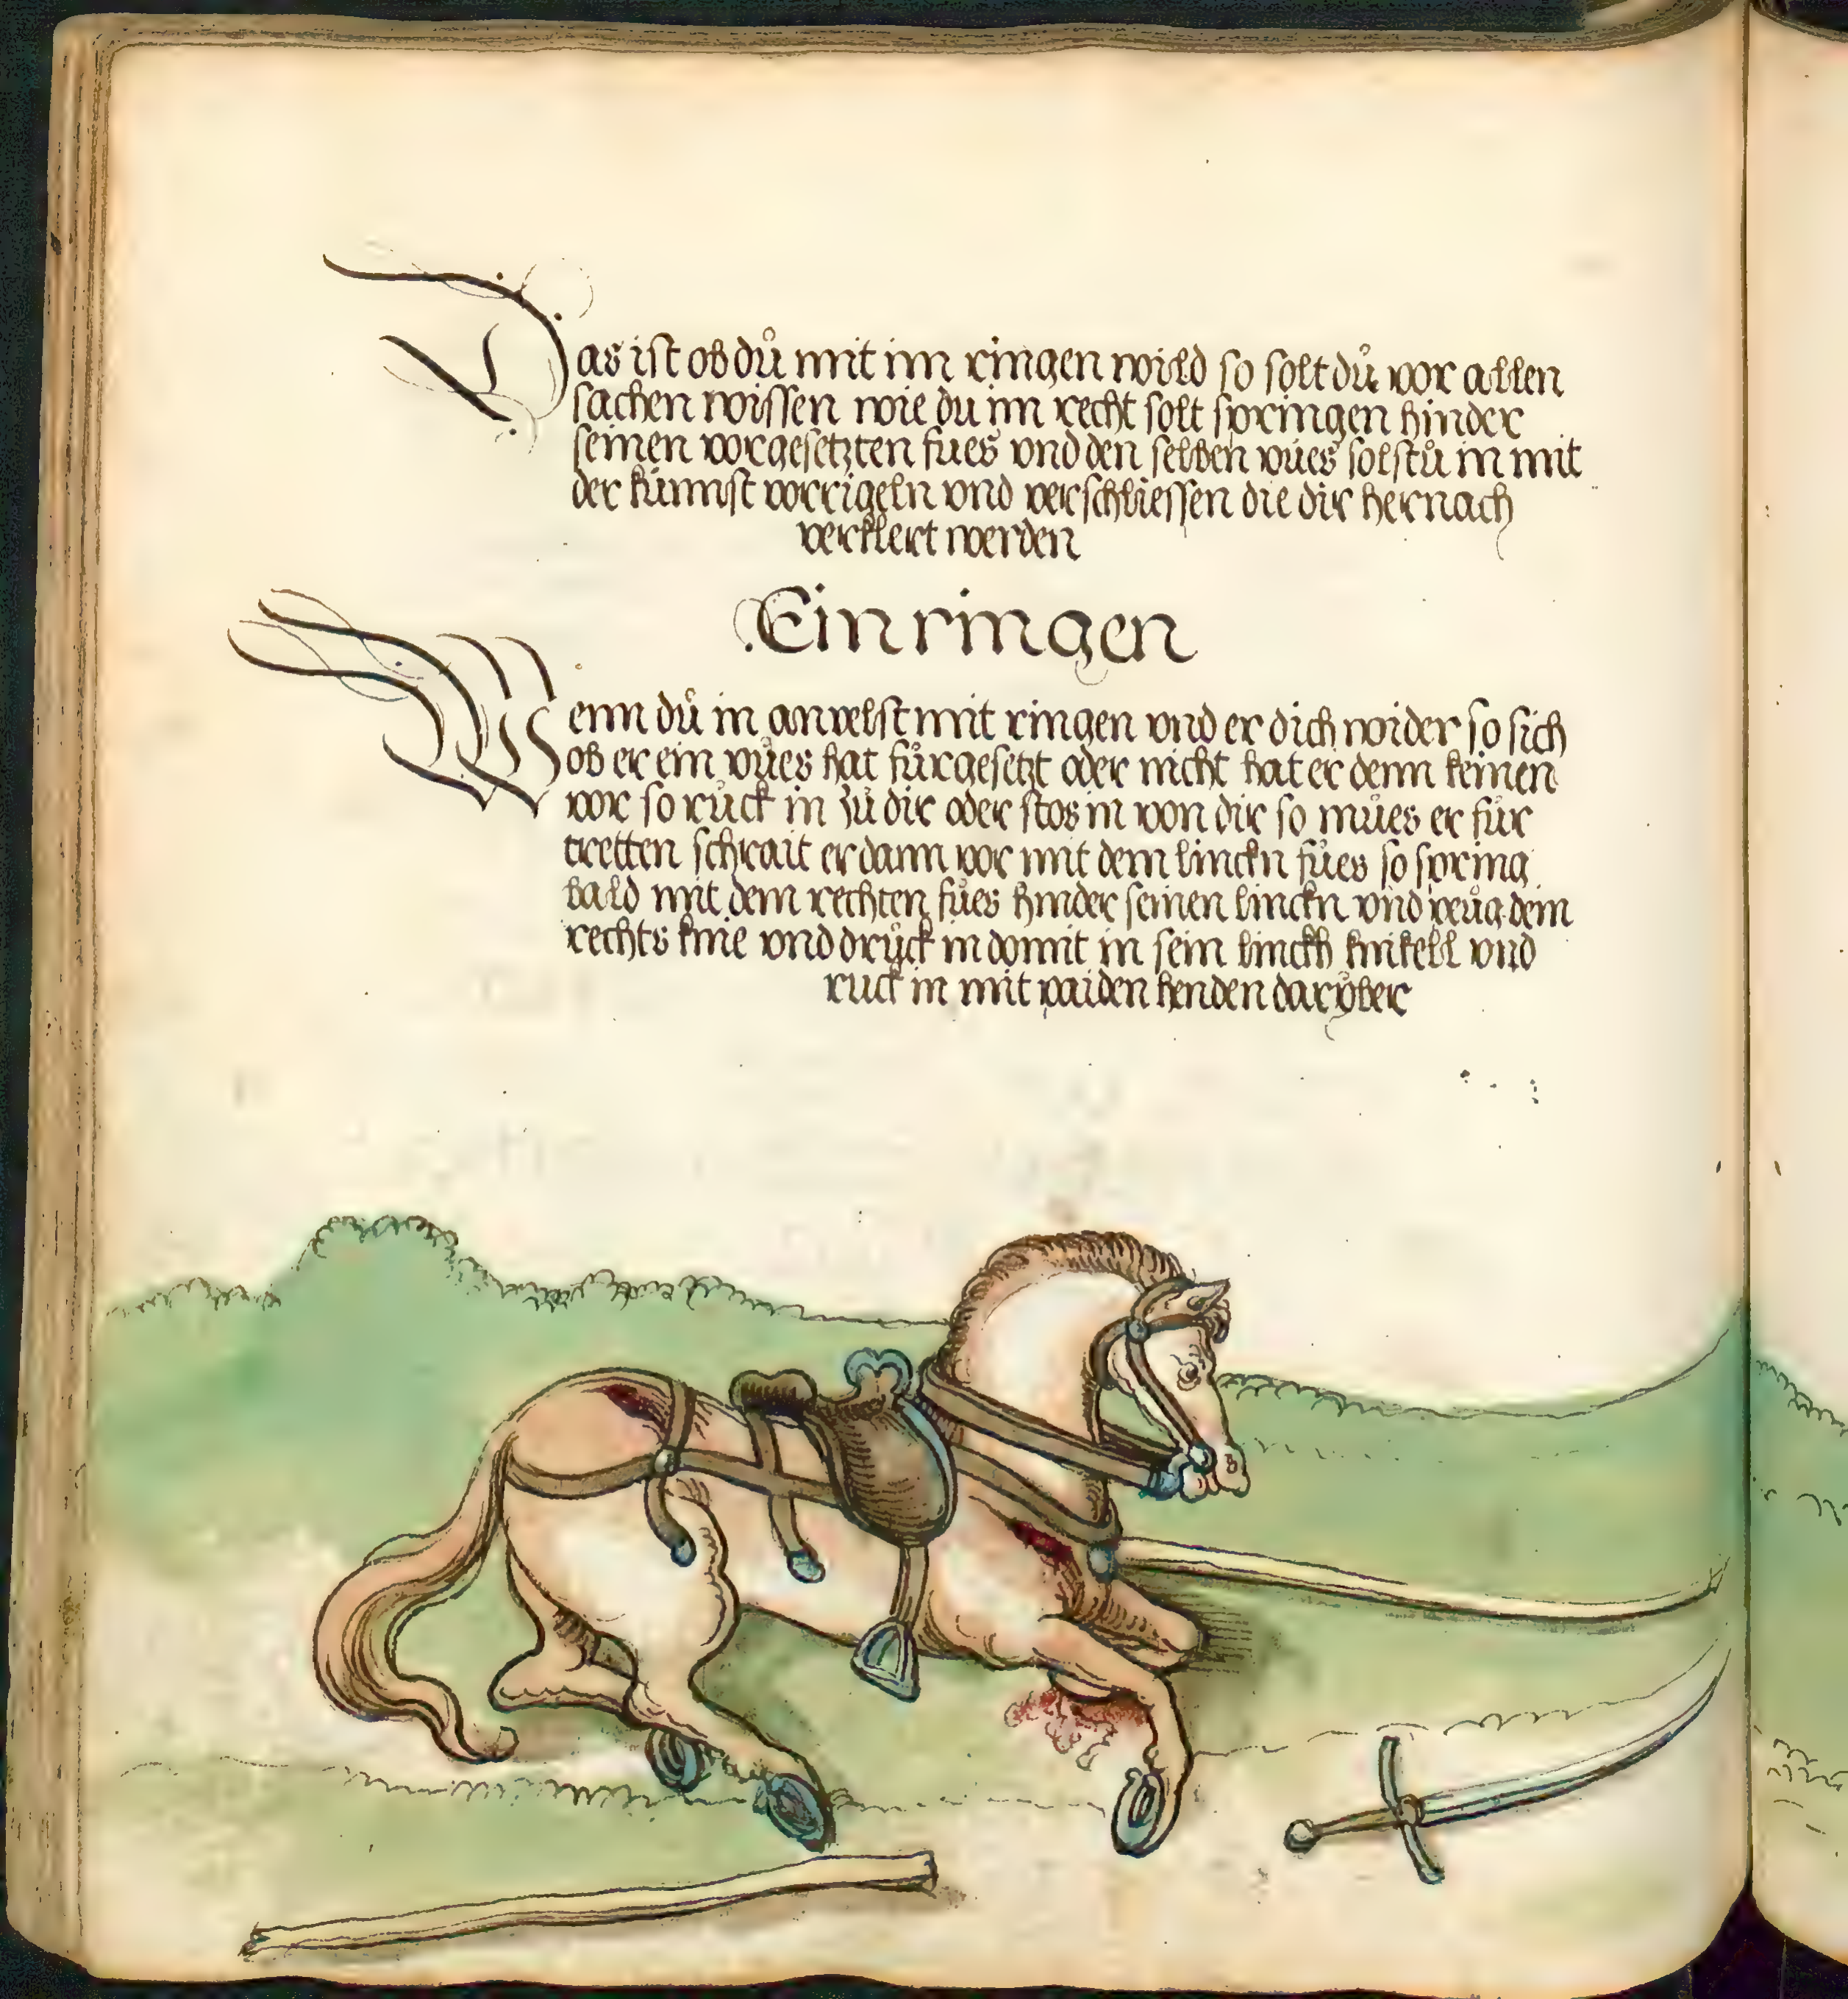 Das ist ob dů mit im ringen wild so solt dů vor allen
sachen wissen wie du im recht solt springen hinder
seinen vorgesetzten fůes vnd den selben vůes solstů in mit
der kůnnst vorrigeln vnd verschliessen die dir hernach
verklert werden
Ein ringen
Wenn dů in anvelst mit ringen vnd er dich wider so sich
ob er ein vůes hat fůrgesetzt oder nicht hat er denn keinen
vor so růck in zů dir oder stos in von dir so můes er fůr
tretten schrait er dann vor mit dem linckn fůes so spring
bald mit dem rechten fůes hinder seinen linckn vnd peůg dem
rechts knie vnd drůck in domit in sein linckh knikell vnd
ruck in mit paiden henden darÿber